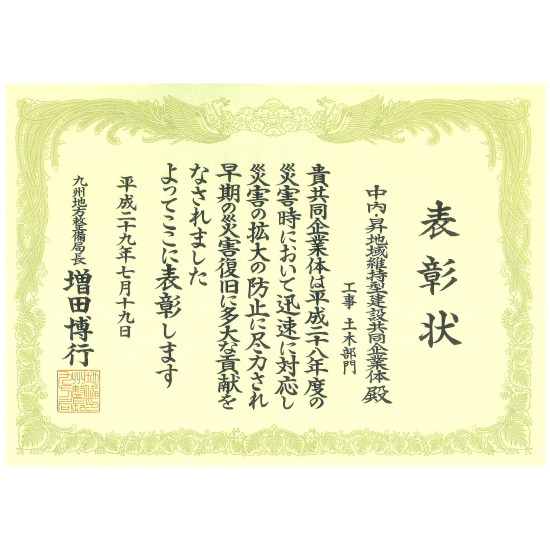 表彰状
中内・昇地域維持型建設共同企業体 殿
工事 土木部門
貴共同企業体は平成二十八年度の
災害時において迅速に対応し
災害の拡大の防止に尽力され
早期の災害復旧に多大な貢献を
なされました
よってここに表彰します
平成二十九年七月十九日
九州地方整備局長 増田博行